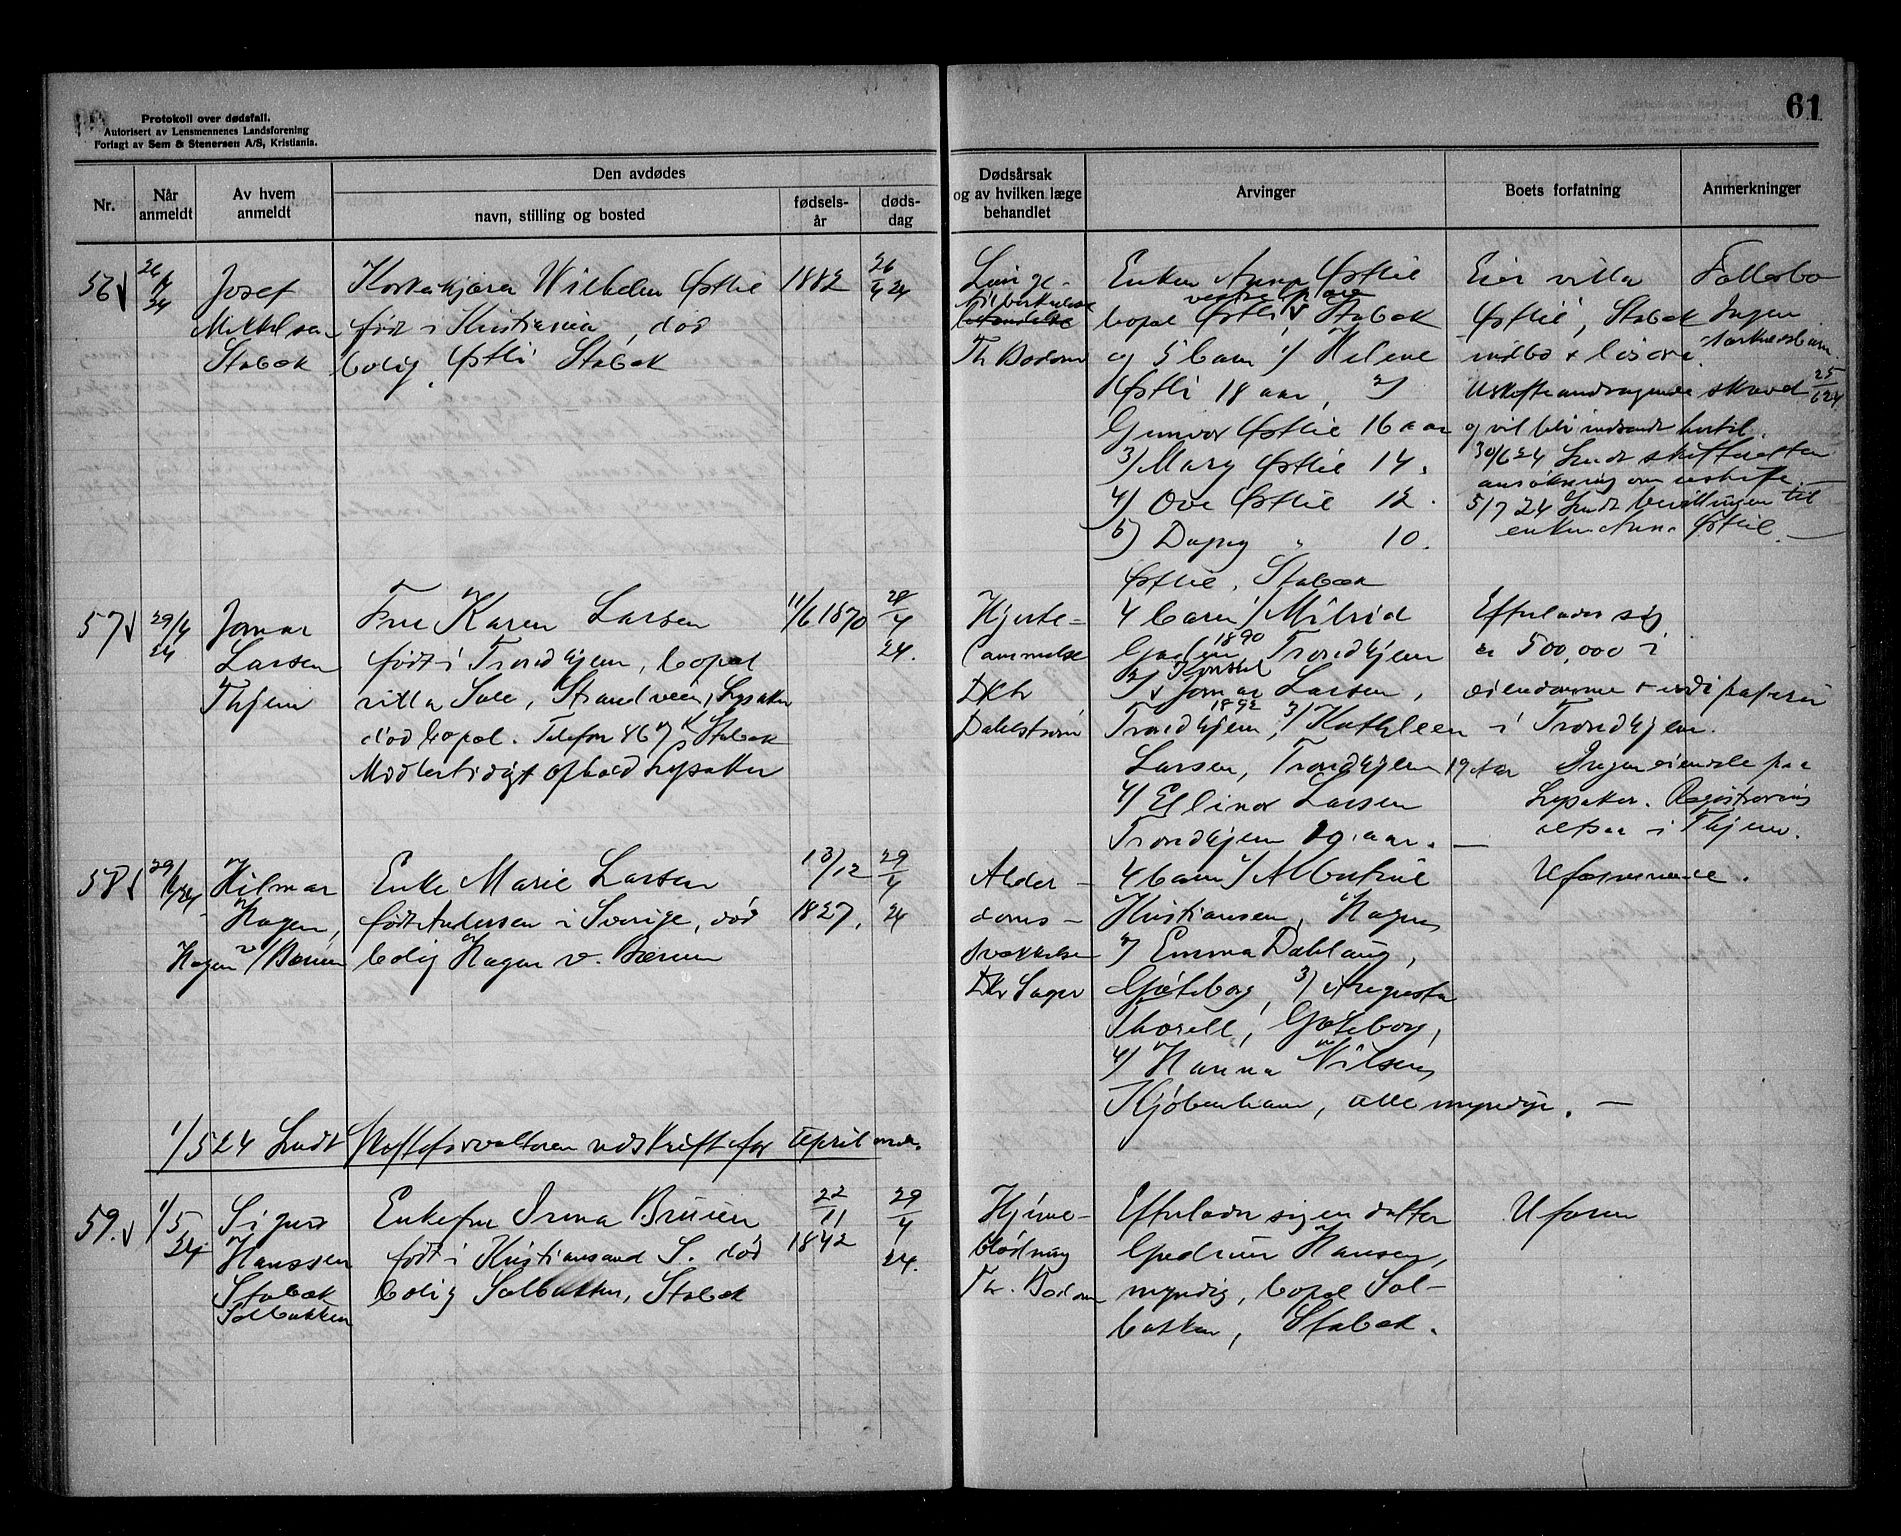 Protokoll over dødsfall.
Autorisert av Lensmennenes Landsforening
Forlagt av Sem & Stenersen A/S, Kristiania.
61
Nr.
Når anmeldt
Av hvem anmeldt
Den avdødes
navn, stilling og bosted
fødselsår
dødsdag
Dødsårsak og av hvilken læge behandlet
Arvinger
Boets forfatning
Anmerkninger
56
26/4 24
Josef
Stabæk
Wilhelm Østlie
født i Kristiania, død
bolig Østli Stabæk
1882
26/4 24
Lunge-
Th Bodom
Enken Anna Østlie
bopæl Østli Stabæk
og 5 barn 1/ Helene
Østli 18 aar, 2/
Gunvor Østlie 16 aar
3/ Mary Østlie 14.
4) Ove Østlie 12.
5) Dagny " 10.
Østlie, Stabæk
Eier villa
Østli, Stabæk
indbo + løsøre
og vil bli indsendt hertil.
30/6 24 Sendt skifteretten
ansökning om uskifte.
5/7 24 Sendt bevillingen til
enken Anna Østlie.
Fællesbo
Ingen
25/6 24
57
29/4 24
Jomar
Larsen
Thjem
Fru Karen Larsen
født i Trondhjem, bopæl
villa Sole, Strandveien, Lysaker
død bopæl. Telefon 867 Stabæk
Midlertidigt ophold Lysaker
11/6 1870
28/4
24.
Hjerte-
lammelse
Dr
Dahlstrøm
4 barn 1/ Milrid
1890
Trondhjem
Jomar Larsen,
1892
Trondhjem, 3/ Kathleen
Larsen, Trondhjem 19 aar
4/ Ellinor Larsen
Trondhjem 19 aar.
Efterlader sig
ca 500,000 i
eiendomme + verdipapirer
i Trondhjem.
Ingen eiendele paa
Lysaker. Registrering
altsaa i Thjem.
58
29/4 24
Hilmar
Hagen,
Hagen v/ Bærum
Enke Marie Larsen
født Andersen i Sverige, død
bolig Hagen v. Bærum
13/12
1827.
29/4
24
Alder-
doms-
svækkelse
Dr Sager
4 barn 1/ Albertine
Kristiansen, Hagen
2/ Emma Dahlaug,
Gøteborg, 3/ Augusta
Thorell, Gøteborg,
4/ Hanna Nilsen,
Kjøbenhavn, alle myndige.
Uformuende.
1/5 24 Sendt skifteforvalteren utskrift for April mnd.
59.
1/5 24
Sigurd
Hanssen
Stabæk
Solbakken
Enkefru Irma Bruun
født i Kristiansand S. død
bolig Solbakken, Stabæk
22/11
1842
29/4
24.
Hjerne-
blødning
Th. Bodom
Efterlader sig en datter
Gudrun Hansen,
myndig, bopæl Sol-
bakken, Stabæk.
Uform